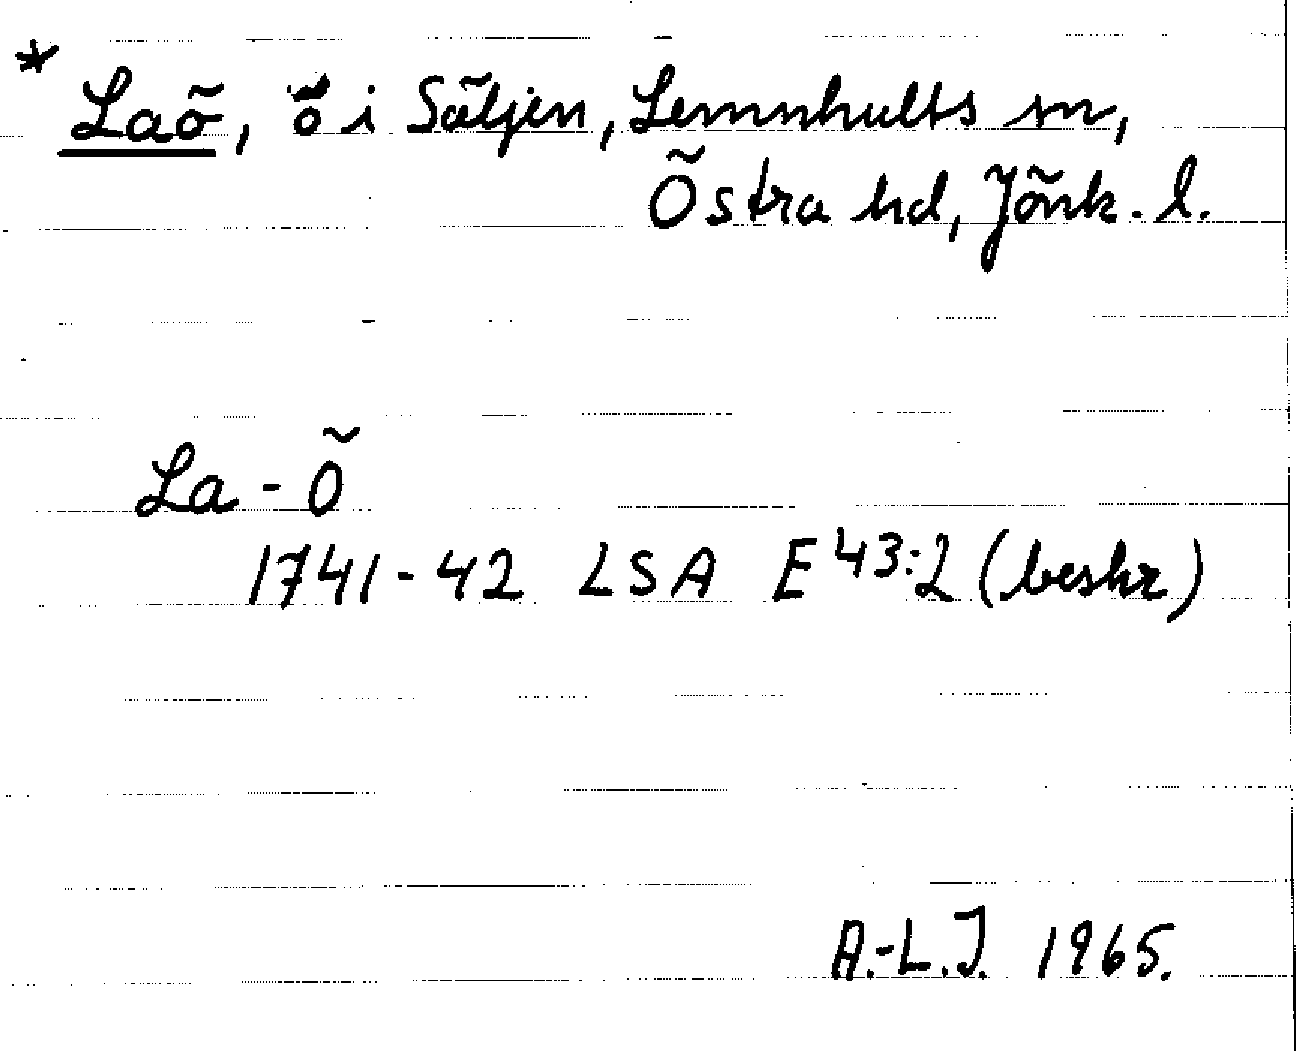 * Laö, ö i Säljen, Lemnhults sn,
Östra hd, Jönk. l.
La-Ö
1741-42 LSA E 43:2 (beskr)
A.-L.J. 1965.